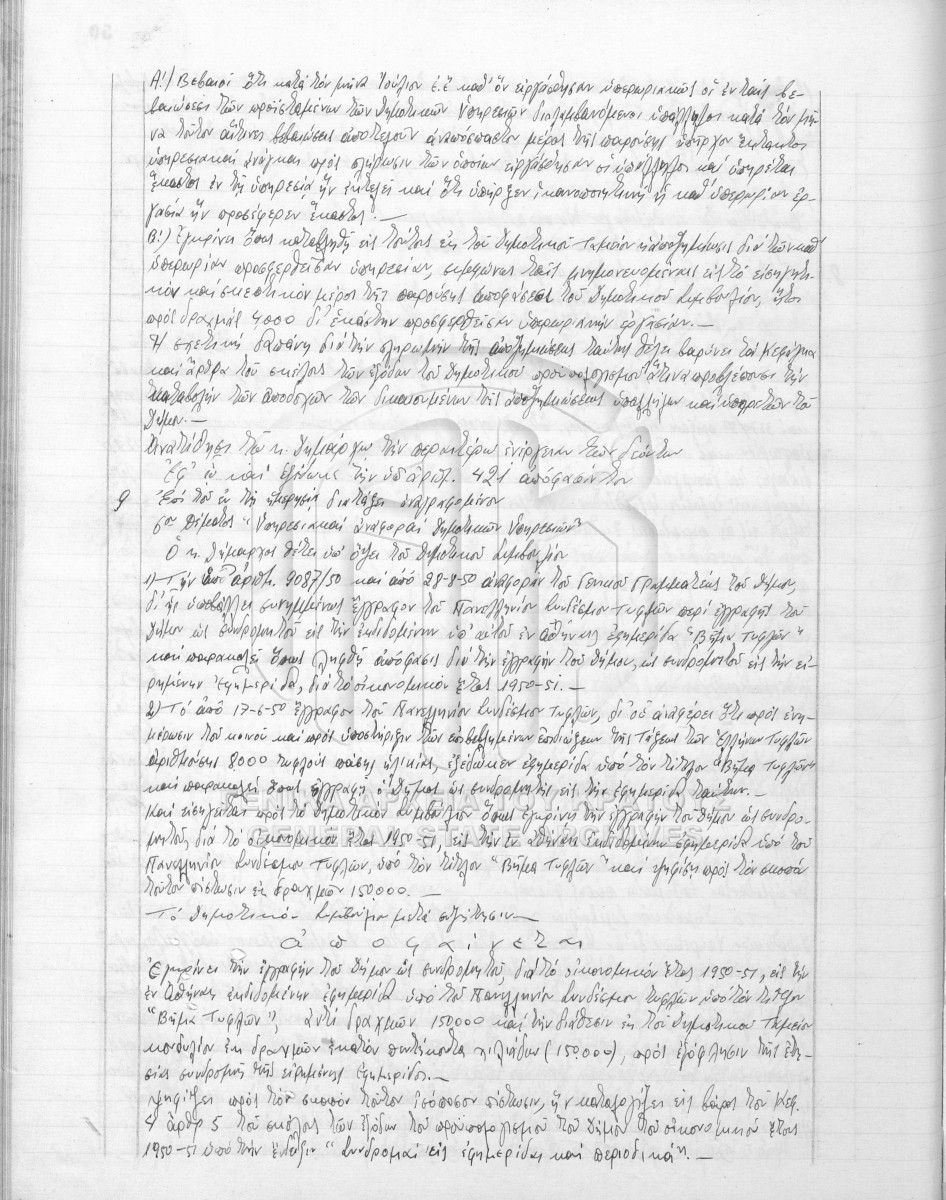 Α'.) Βεβαιοῖ ὅτι κατά τόν μῆνα Ἰούλιον ἐ.ἔ καθ' ὅν εἰργάσθησαν ὑπερωριακῶς οἱ ἐν ταῖς βε-
βαιώσεσι τῶν προϊσταμένων τῶν Δημοτικῶν Ὑπηρεσιῶν διαλαμβανόμενοι ὑπάλληλοι κατά τόν μῆ-
να τοῦτον αἵτινες βεβαιώσεις ἀποτελοῦν ἀναπόσπαστον μέρος τῆς παρούσης ὑπῆρχον ἔκτακτοι
ὑπηρεσιακαί ἀνάγκαι πρός πλήρωσιν τῶν ὁποίων εἰργάσθησαν οἱ ὑπάλληλοι καί ὑπηρέται
ἕκαστος ἐν τῇ ὑπηρεσίᾳ ἥν ἐκτελεῖ καί ὅτι ὑπῆρξεν ἱκανοποιητική ἡ καθ' ὑπερωρίαν ἐρ-
γασία ἥν προσέφερεν ἕκαστος.—
Β'.) Ἐγκρίνει ὅπως καταβληθῇ εἰς τούτους ἐκ τοῦ Δημοτικοῦ Ταμείου ἡ ἀποζημίωσις διά τῶν καθ'
ὑπερωρίαν προσφερθεῖσαν ὑπηρεσίαν, συμφώνως ταῖς μνημονευομέναις εἰς τό εἰσηγητι-
κόν καί σκεπτικόν μέρος τῆς παρούσης ἀποφάσεως τοῦ Δημοτικοῦ Συμβουλίου, ἤτοι
πρός δραχμάς 4000 δι' ἑκάστην προσφερθεῖσαν ὑπερωριακήν ἐργασίαν.—
Ἡ σχετική δαπάνη διά τήν πληρωμήν τῆς ἀποζημιώσεως ταύτης θέλει βαρύνει τά Κεφάλαια
καί ἄρθρα τοῦ σκέλους τῶν ἐξόδων τοῦ Δημοτικοῦ προϋπολογισμοῦ ἅτινα προβλέπουσι τήν
καταβολήν τῶν ἀποδοχῶν τῶν δικαιουμένων τῆς ἀποζημιώσεως ὑπαλλήλων καί ὑπηρετῶν τοῦ
Δήμου.—
Ἀνατίθησι τῷ κ. Δημάρχῳ τήν περαιτέρω ἐνέργειαν τῶν δεόντων
Ἐφ' ᾧ καί ἐξέδωκε τήν ὑπ' ἀριθ. 421 ἀπόφασίν του
9 Ἐπί τοῦ ἐν τῇ ἡμερησίᾳ διατάξει ἀναγραφομένου
6ου θέματος "Ὑπηρεσιακαί ἀναφοραί Δημοτικῶν Ὑπηρεσιῶν"
Ὁ κ. Δήμαρχος θέτει ὑπ' ὄψει τοῦ Δημοτικοῦ Συμβουλίου
1) Τήν ὑπ' ἀριθμ. 9087/50 καί ἀπό 28-8-50 ἀναφοράν τοῦ Γενικοῦ Γραμματέως τοῦ Δήμου,
δι' ἧς ὑποβάλλει συνημμένως ἔγγραφον τοῦ Πανελληνίου Συνδέσμου Τυφλῶν περί ἐγγραφῆς τοῦ
Δήμου ὡς συνδρομητοῦ εἰς τήν ἐκδιδομένην ὑπ' αὐτοῦ ἐν Ἀθήναις ἐφημερίδα "Βῆμα Τυφλῶν"
καί παρακαλεῖ ὅπως ληφθῇ ἀπόφασις διά τήν ἐγγραφήν τοῦ Δήμου, ὡς συνδρομητοῦ εἰς τήν εἰ-
ρημένην Ἐφημερίδα, διά τό οἰκονομικόν ἔτος 1950-51.—
2) Τό ἀπό 17-6-50 ἔγγραφον τοῦ Πανελληνίου Συνδέσμου Τυφλῶν, δι' οὗ ἀναφέρει ὅτι πρός ἐνη-
μέρωσιν τοῦ κοινοῦ καί πρός ὑποστήριξιν τῶν ἐπιβεβλημένων ἐπιδιώξεων τῆς τάξεως τῶν Ἑλλήνων Τυφλῶν
ἀριθμούσης 8.000 τυφλούς πάσης ἡλικίας, ἐξέδωκεν ἐφημερίδα ὑπό τόν τίτλον "Βῆμα Τυφλῶν"
καί παρακαλεῖ ὅπως ἐγγραφῇ ὁ Δῆμος ὡς συνδρομητής εἰς τήν ἐφημερίδα ταύτην.—
Καί εἰσηγεῖται πρός τό Δημοτικόν Συμβούλιον ὅπως ἐγκρίνῃ τήν ἐγγραφήν τοῦ Δήμου ὡς συνδρο-
μητοῦ, διά τό οἰκονομικόν ἔτος 1950-51, εἰς τήν ἐν Ἀθήναις ἐκδιδομένην ἐφημερίδα ὑπό τοῦ
Πανελληνίου Συνδέσμου Τυφλῶν, ὑπό τόν τίτλον "Βῆμα Τυφλῶν" καί ψηφίσῃ πρός τόν σκοπόν
τοῦτον πίστωσιν ἐκ δραχμῶν 150000.—
Τό Δημοτικόν Συμβούλιον μετά συζήτησιν—
ἀποφαίνεται
Ἐγκρίνει τήν ἐγγραφήν τοῦ Δήμου ὡς συνδρομητοῦ, διά τό οἰκονομικόν ἔτος 1950-51, εἰς τήν
ἐν Ἀθήναις ἐκδιδομένην ἐφημερίδα ὑπό τοῦ Πανελληνίου Συνδέσμου Τυφλῶν ὑπό τόν τίτλον
"Βῆμα Τυφλῶν", ἀντί δραχμῶν 150000 καί τήν διάθεσιν ἐκ τοῦ Δημοτικοῦ Ταμείου
κονδυλίου ἐκ δραχμῶν ἑκατόν πεντήκοντα χιλιάδων (150.000), πρός ἐξόφλησιν τῆς ἐτη-
σίας συνδρομῆς τῆς εἰρημένης ἐφημερίδος.—
Ψηφίζει πρός τόν σκοπόν τοῦτον ἰσόποσον πίστωσιν, ἥν καταλογίζει εἰς βάρος τοῦ Κεφ.
4 ἄρθρ 5 τοῦ σκέλους τῶν ἐξόδων τοῦ προϋπολογισμοῦ τοῦ Δήμου τοῦ οἰκονομικοῦ ἔτους
1950-51 ὑπό τήν ἔνδειξιν "Συνδρομαί εἰς ἐφημερίδας καί περιοδικά".—
ΓΕΝΙΚΑ ΑΡΧΕΙΑ ΤΟΥ ΚΡΑΤΟΥΣ
GENERAL STATE ARCHIVES